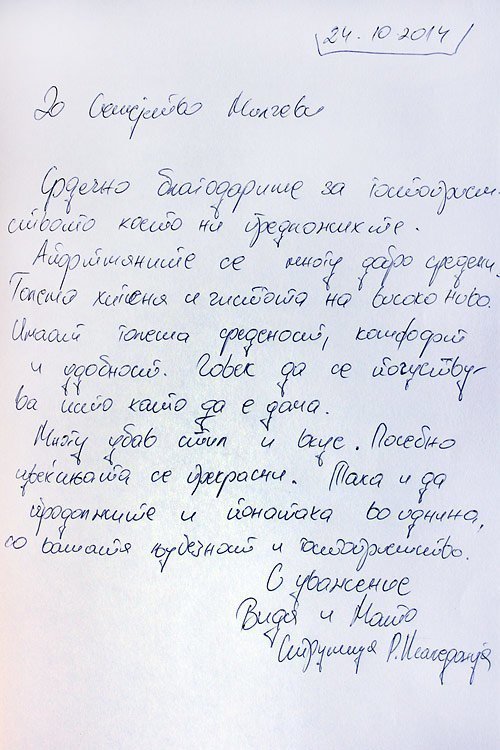 24.10.2014
До Семејство Милчеви
Срдечно благодариме за гостоприем-
ството което ни предложихте.
Апартманите се многу добро средени.
Голема хигиена и чистота на високо ниво.
Имаат голема среденост, комфорт
и удобност. Човек да се почувству-
ва исто като да е дома.
Многу убав стил и вкус. Посебно
се прекрасни. Така и да
продолжите и понатака во иднина,
со вашата љубезност и гостопримство.
С уважение
Вида и Мато
Струмица Р.Македонија